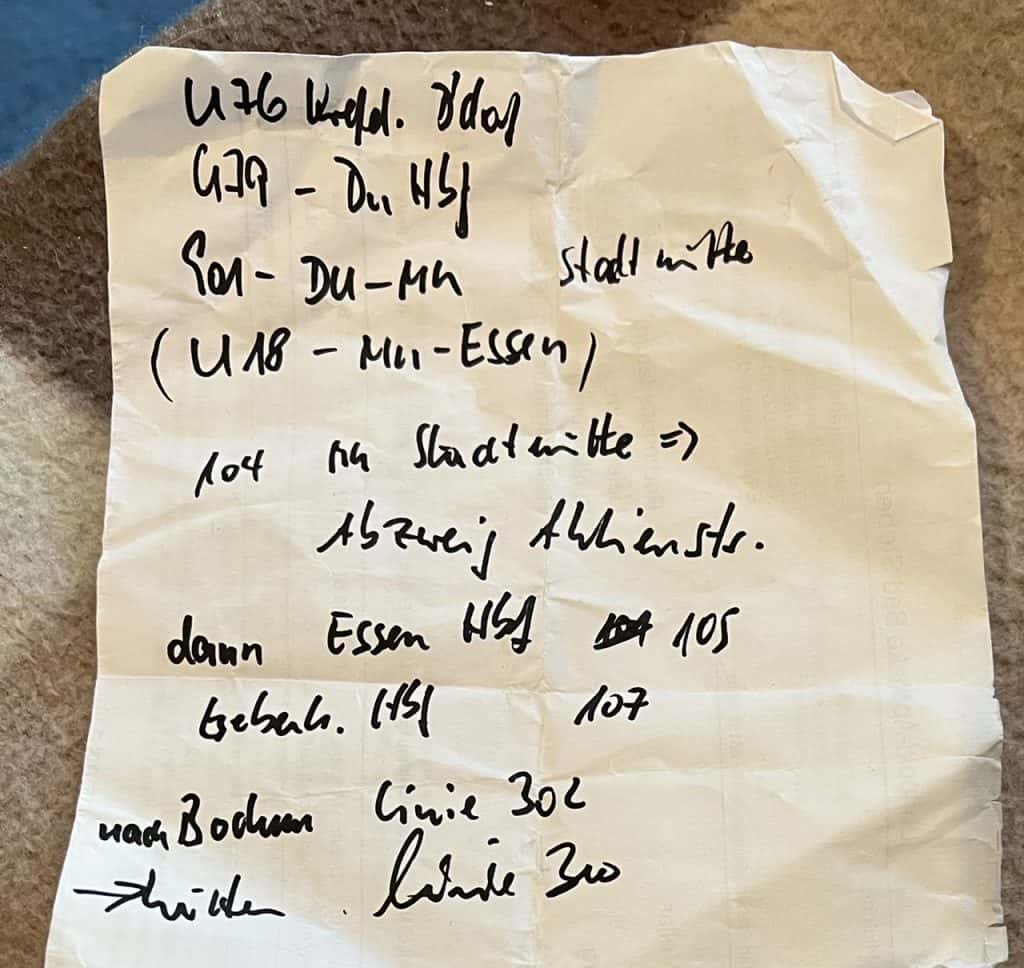 U76 Krefd. Ddorf
U79 - Du Hbf
901 - DU - MH Stadtmitte
(U18 - MH - Essen)
104 MH Stadtmitte =>
Abzweig Aktienstr.
dann Essen Hbf 105
Hbf 107
nach Bochum Linie 302
→ Witten Linie 310